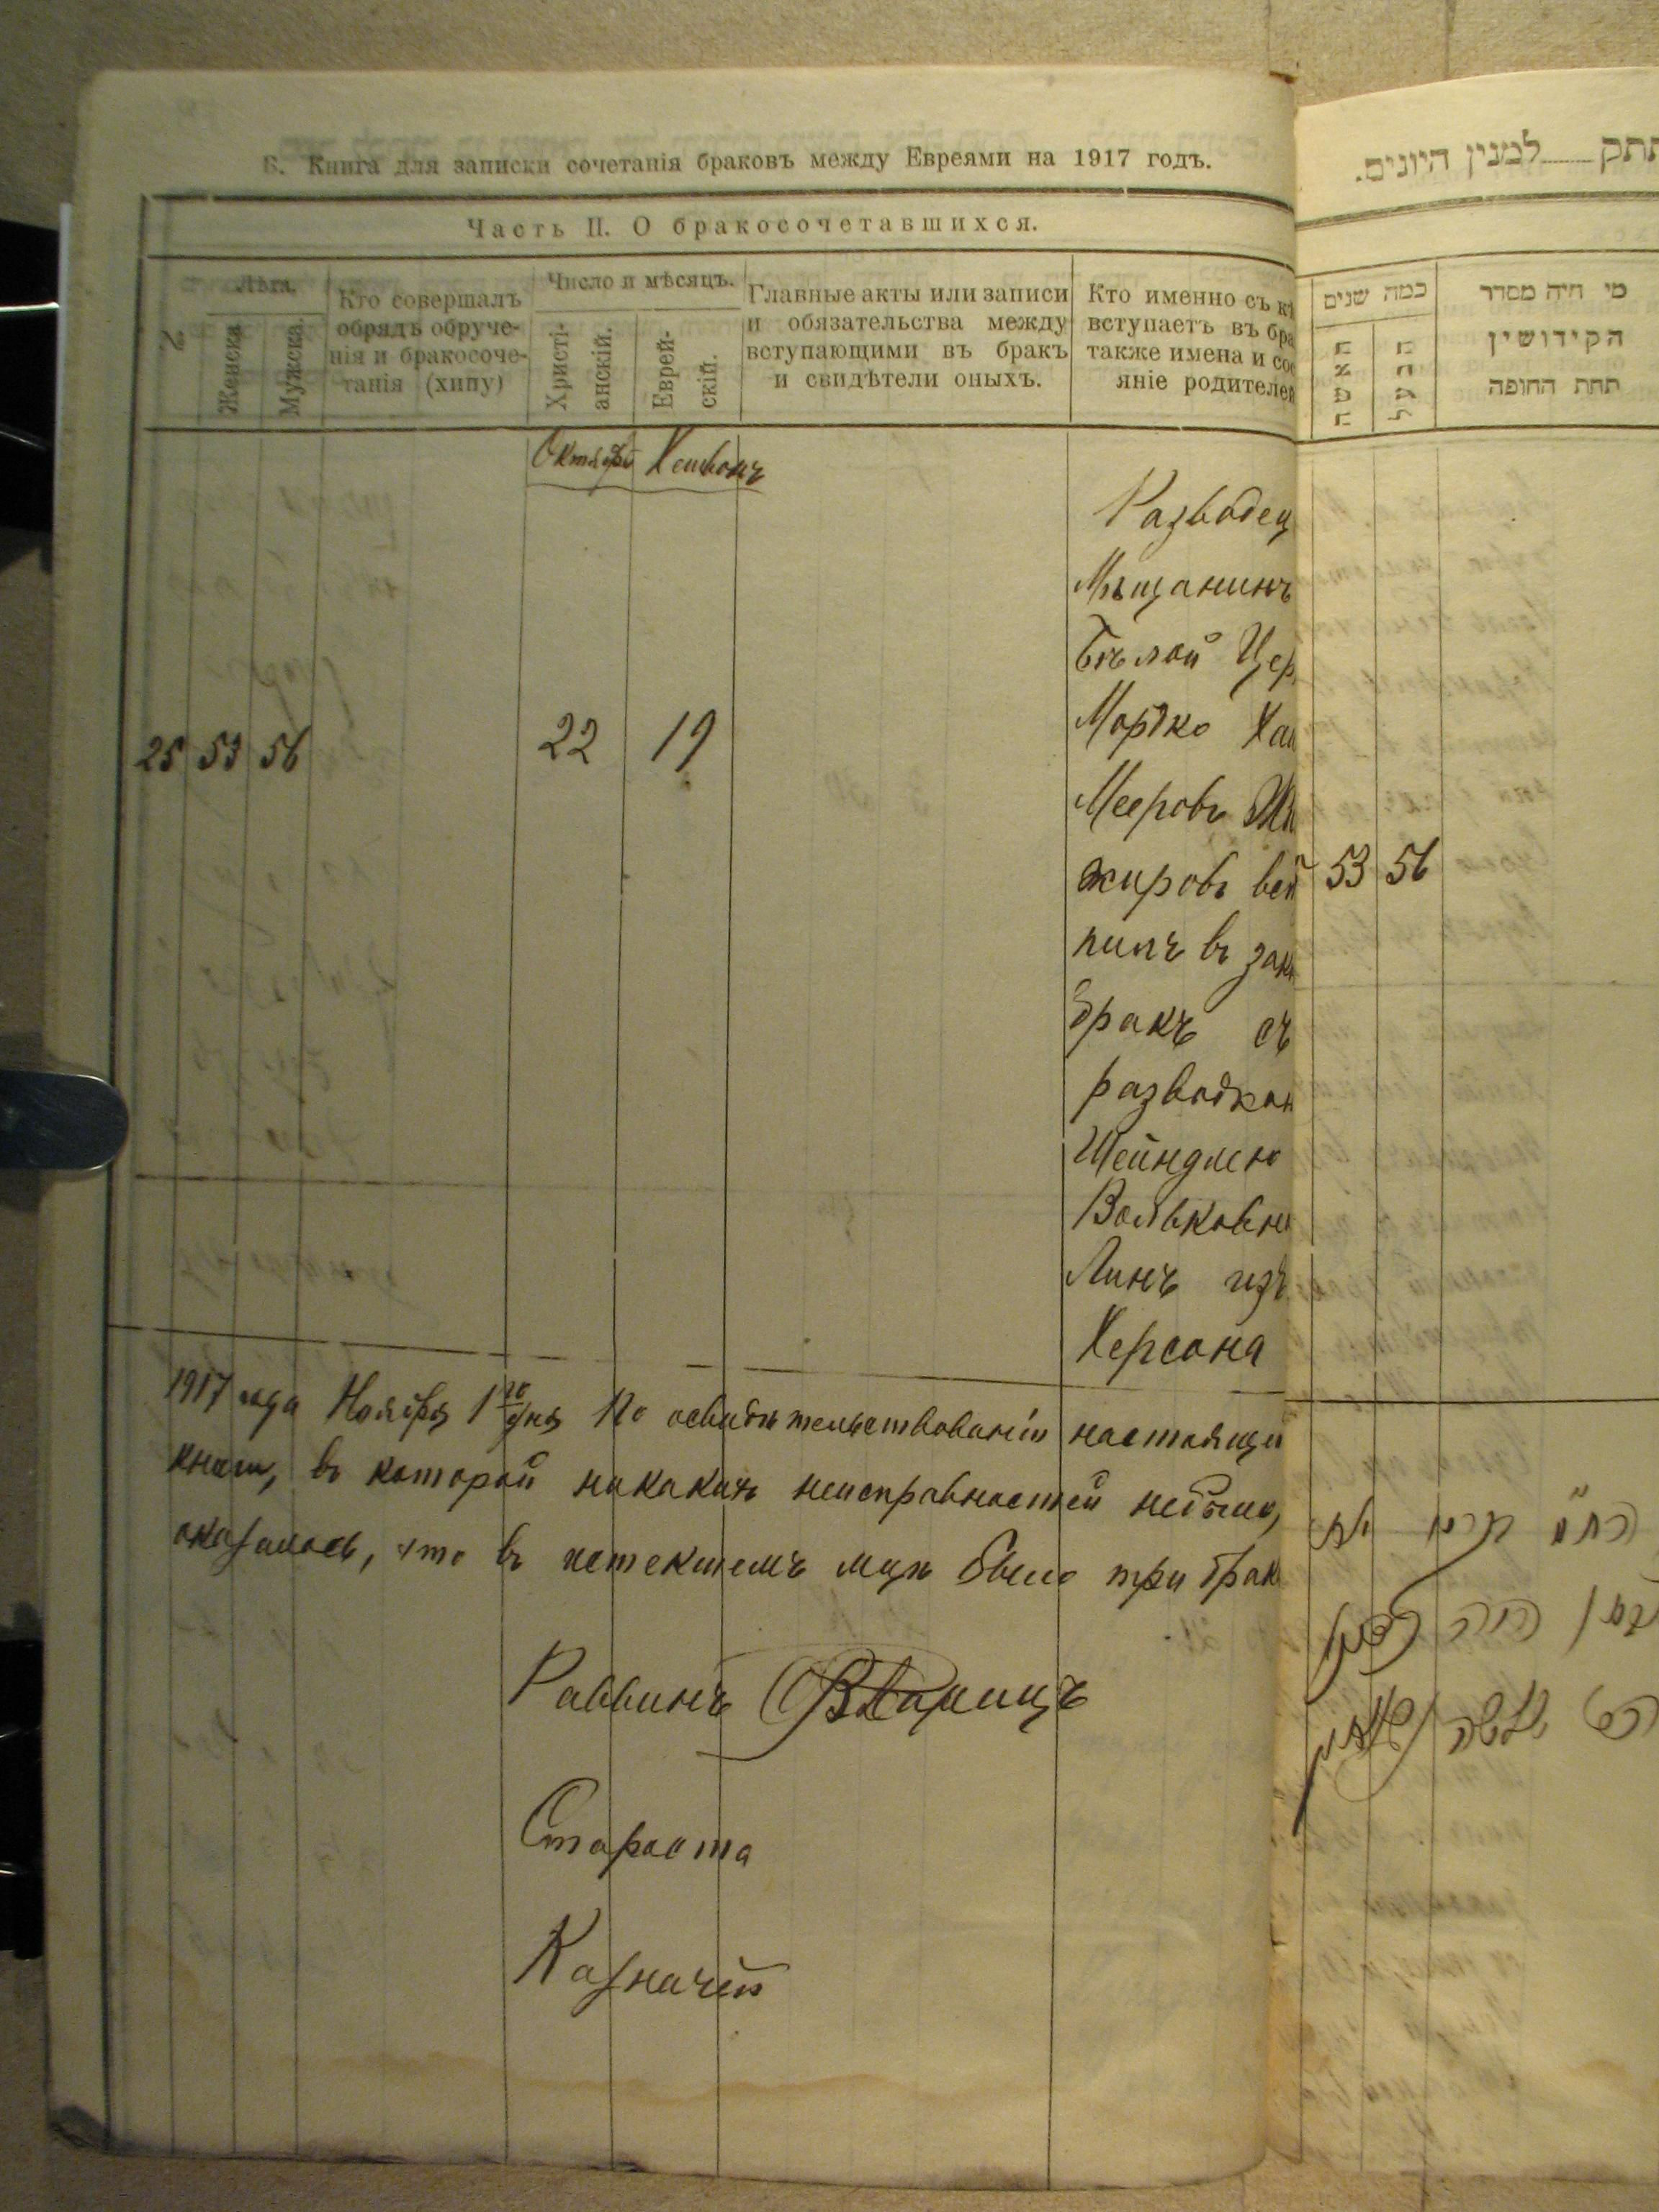 Б. Книга для записки сочетанія браковъ между Евреями на 1917 годъ.
Часть II. О бракосочетавшихся.
Лѣта.
Женска
Мужска.
Кто совершалъ
обрядъ обруче-
нія и бракосоче-
танія (хипу)
Число и мѣсяцъ.
Христі-
анскій.
Еврей-
скій.
Главные акты или записи
и обязательства между
вступающими въ бракъ
и свидѣтели оныхъ.
Кто именно съ кѣ
вступаетъ въ бра
также имена и сос
яніе родителей
Октябрь Хешвонъ
25 53 56 22 19
Разводец
Мѣщанинъ
Бѣлой Цер
Мордко Хаи
Мееровъ
жировъ всту
пилъ въ зак
бракъ съ
разводкой
Шейндлею
Вольковно
Линъ изъ
Херсона
1917 года Ноября 1го дня По освидѣтельствованіи настоящей
книги, въ которой никакихъ неисправностей небыло,
оказалось, что въ истекшемъ мцѣ было три брак
Раввинъ
Староста
Казначей
תתק למנין היונים.
כמה שנים
האשה
הבעל
מי היה מסדר
הקידושין
תחת החופה
53 56